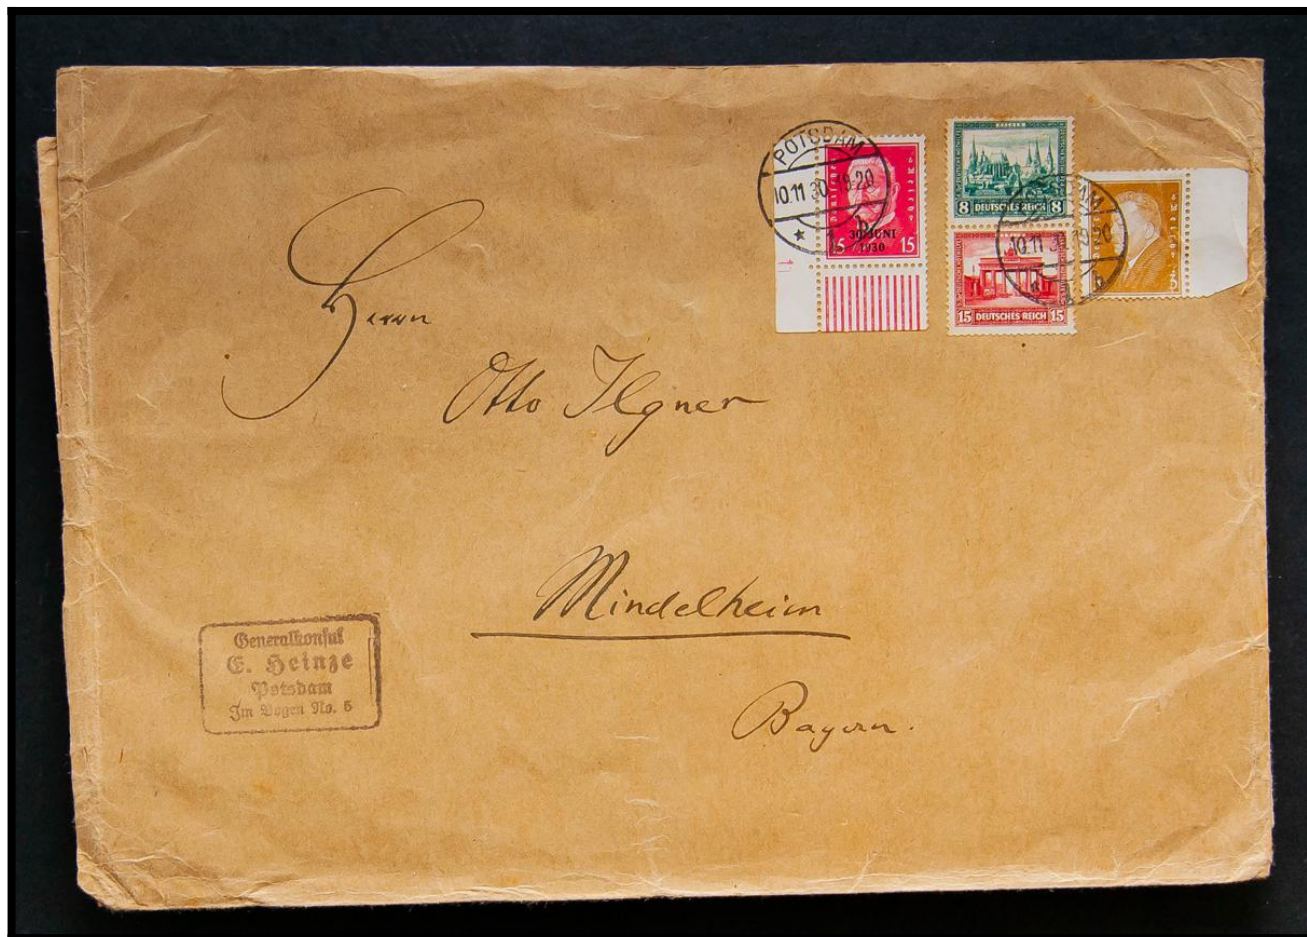 POTSDAM
10.11 30 19-20
b
15 15
30.JUNI
1930
AACHEN
8 DEUTSCHES REICH 8
15 DEUTSCHES REICH 15
10.11 19-20
b
3
Herrn
Otto Ilgner
Mindelheim
Bayern.
Generalkonsul
E. Heinze
Potsdam
Im Bogen No. 5